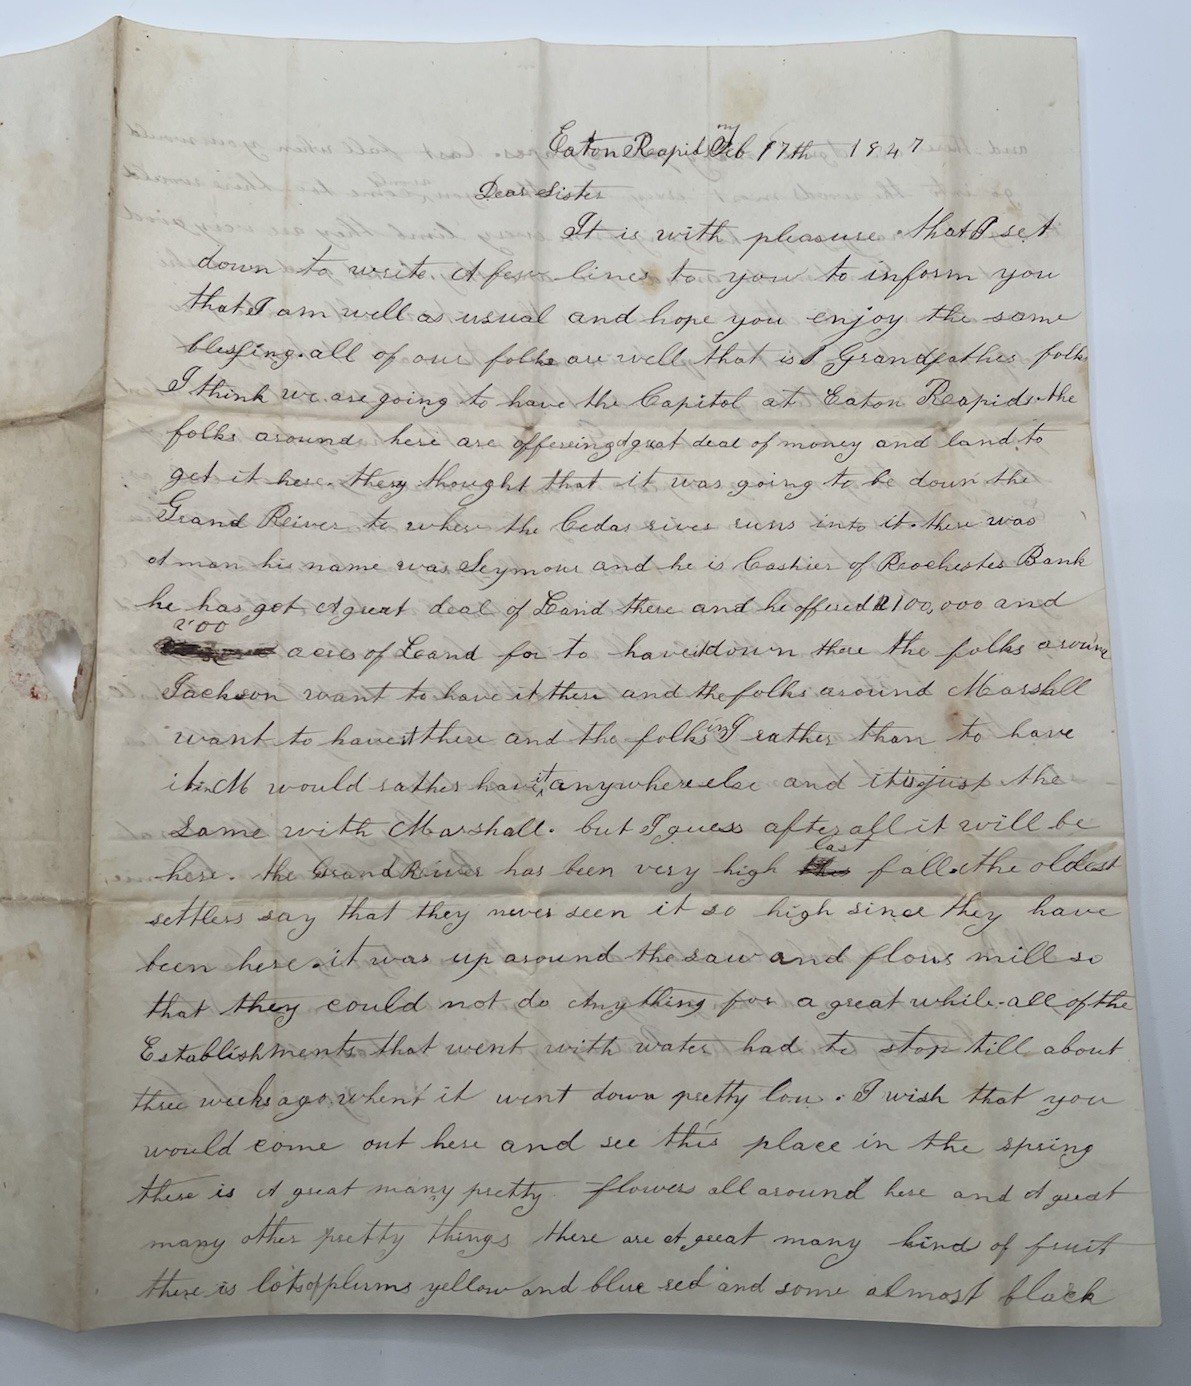 Eaton Rapids My Feb 17th 1847
Dear Sister
It is with pleasure that I set
down to write A few lines to you to inform you
that I am well as usual and hope you enjoy the same
blessing. all of our folks are well that is Grandfather folks
I think we are going to have the Capitol at Eaton Rapids. the
folks around here are offereing A great deal of money and land to
get it here. they thought that it was going to be down the
Grand River to where the Cedar river runs into it. there was
A man his name was Seymour and he is Cashier of Rochester Bank
he has got A great deal of Land there and he offered 100,000 and
200
acres of Land for to have it down there the folks around
Jackson want to have it there and the folks around Marshall
want to have it there and the folks in J rather than to have
it in M would rather have it anywhere else and it is just the
same with Marshall. but I guess after all it will be
here. the Grand River has been very high last fall. the oldest
settlers say that they never seen it so high since they have
been here. it was up around the saw and flour mill so
that they could not do Anything for a great while. all of the
Establishments that went with water had to stop till about
three weeks ago. when it went down pretty low. I wish that you
would come out here and see this place in the spring
there is A great many pretty flowers all around here and A great
many other pretty things there are A great many kinds of fruit
there is lots of plums yellow and blue red and some almost black